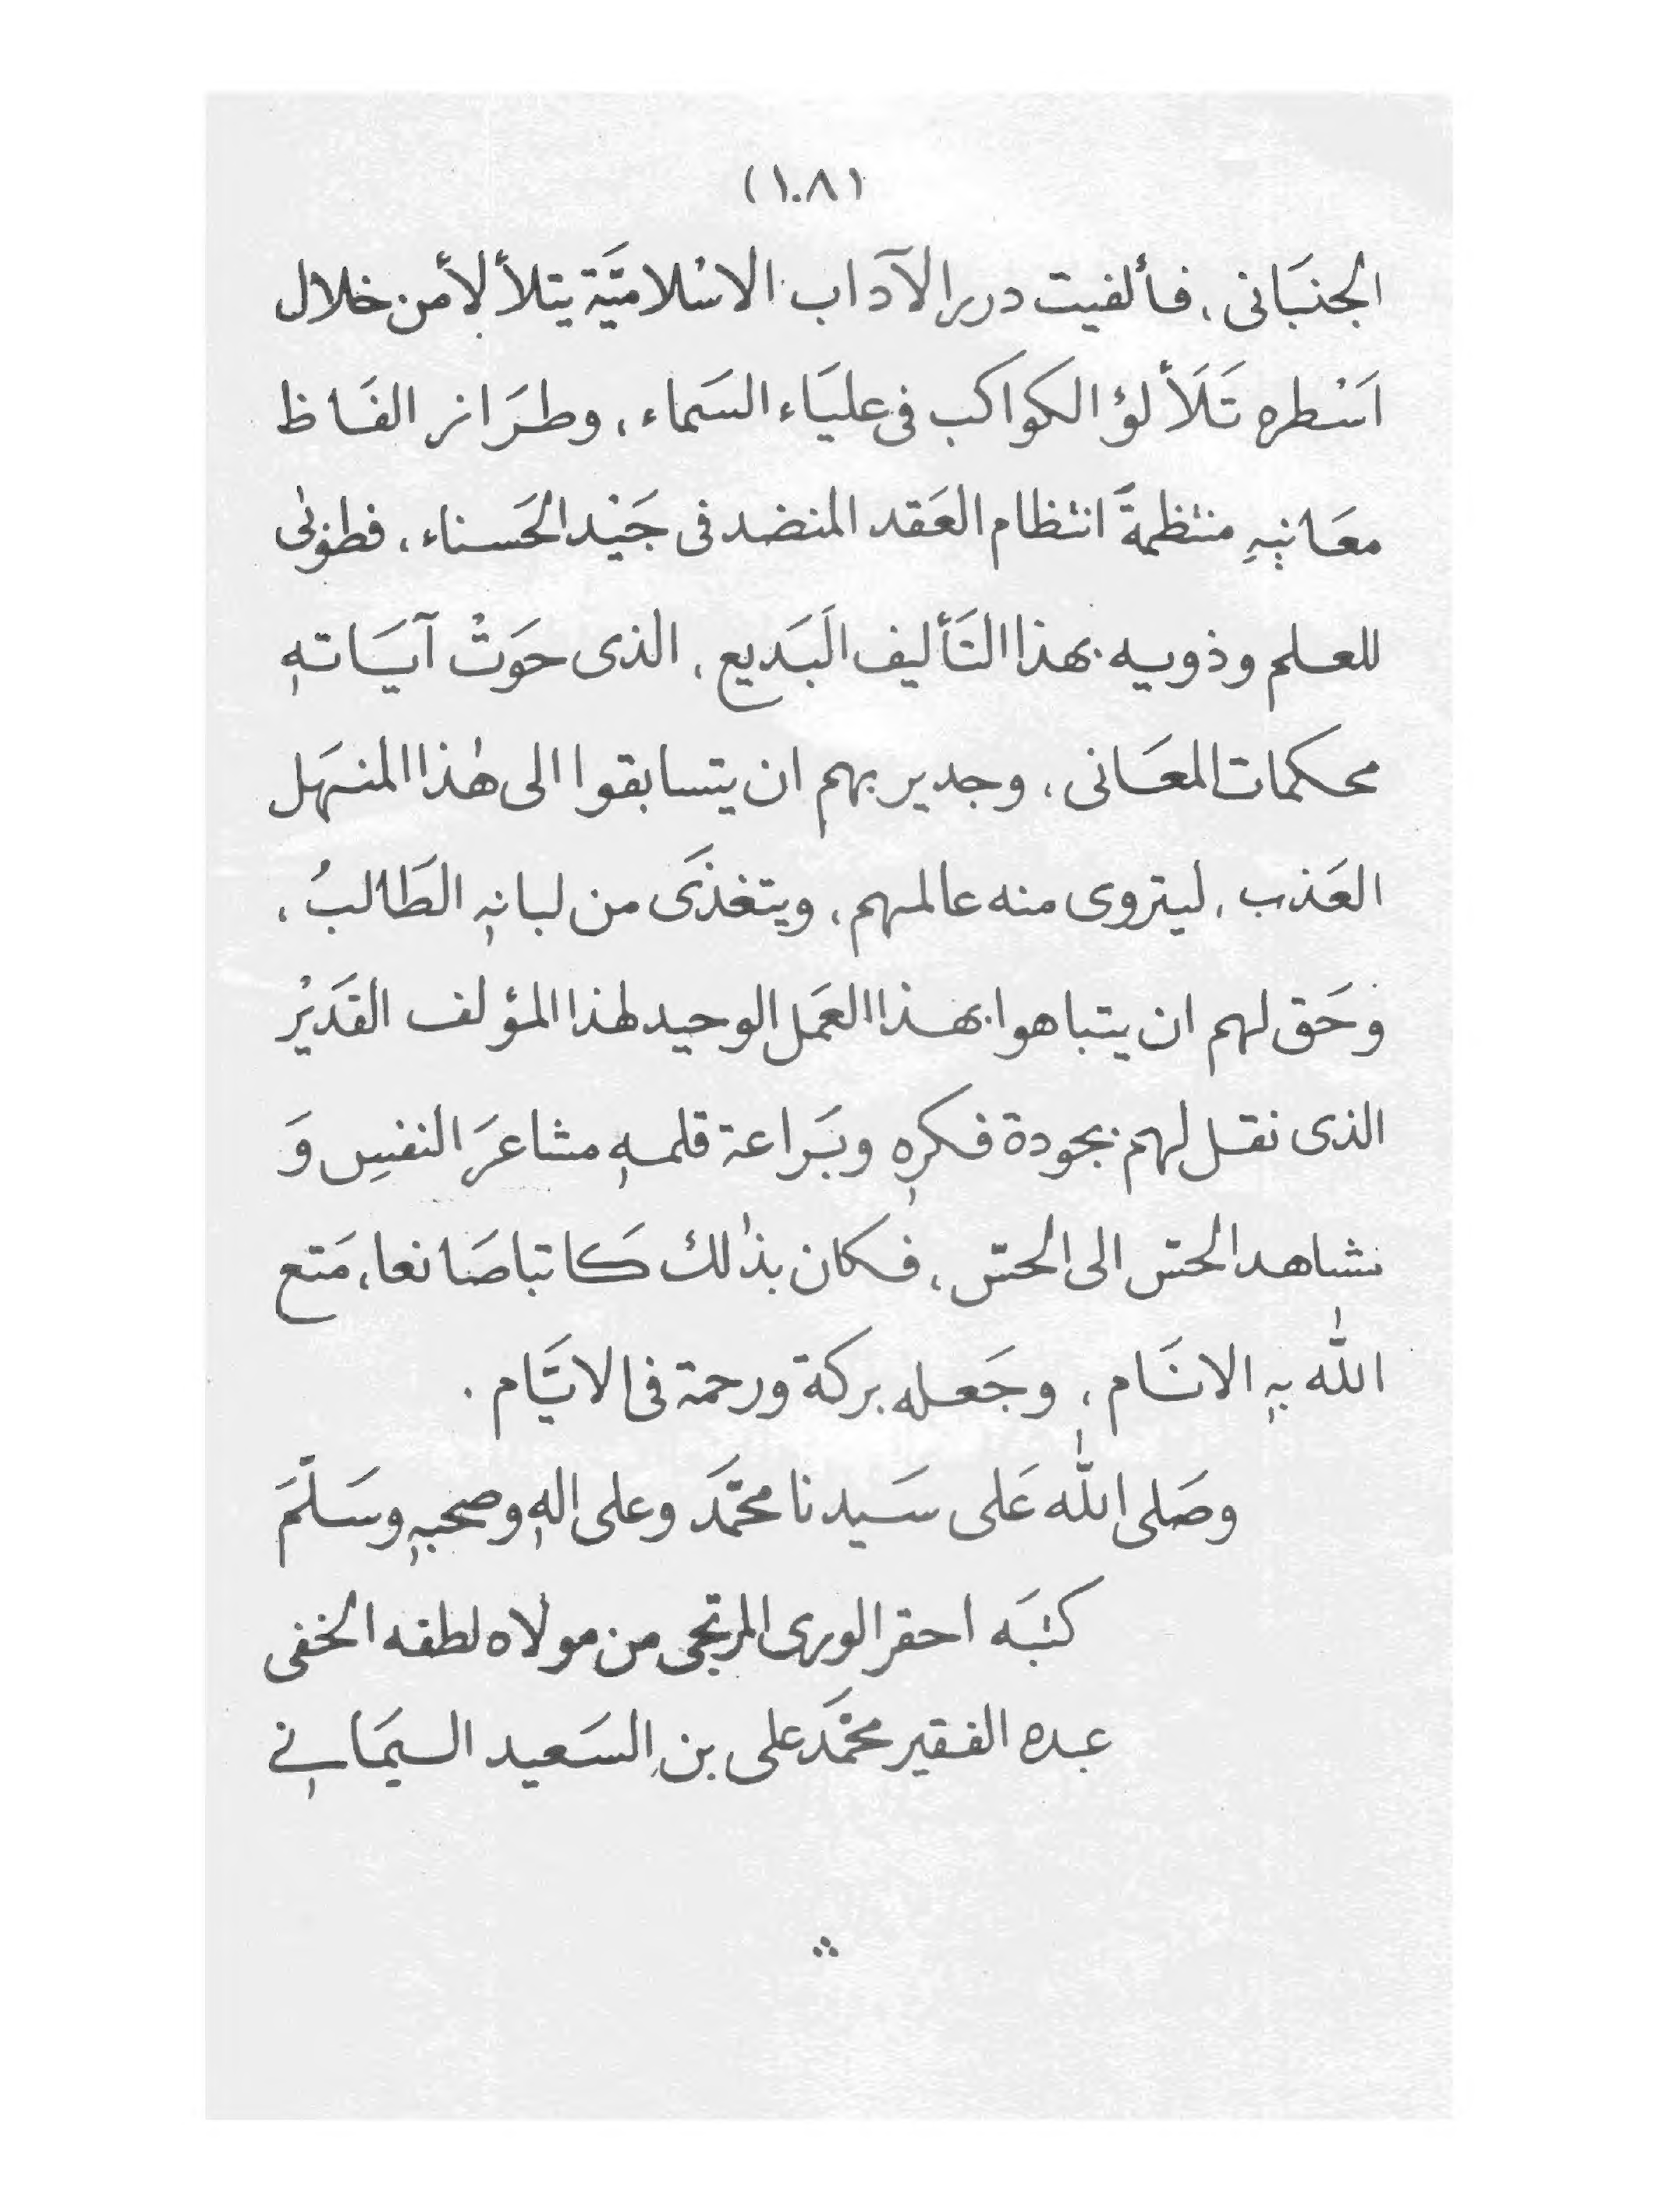 (١٠٨)
الجنَبَانى، فألفيت درر الآداب الاسْلاميَّة يتلألأ من خلال
اَسْطره تَلَألؤ الكواكب فى عليَاء السَماء، وطرَاز الفَاظ
معَانيهِ منتظمةً انتظام العَقد المنضد فى جَيْد الحَسناء، فطوبٰى
للعلم وذويه بهذا التَأليف البَديع، الذى حوَتْ آيَاته
محكمات المعَانى، وجدير بهم ان يتسابقوا الى هٰذا المنهَل
العَذب، ليتروى منه عالمهم، ويتغذَى من لبانهٖ الطَالبُ،
وَحَق لهم ان يتباهوا بهذا العَمَل الوحيد لهذا المؤلف القَديْر
الذى نقل لهم بجودة فكرهٖ وبَراعة قلمهٖ مشاعرَ النفسِ وَ
نشاهد الحسّ الى الحسّ، فكان بذٰلك كَاتبا صَانعا، مَتع
اللّٰه بهٖ الانَام، وجَعله بركة ورحمة فى الايَّام.
وصَلى اللّٰه عَلى سَيدنا محمَّد وعلى الهٖ وصحبهٖ وسَلَّمَ
كتبَه احقر الورى المرتجى من مولاه لطفه الخفى
عبده الفقير محمَّد على بن السَعيد السيمَانى